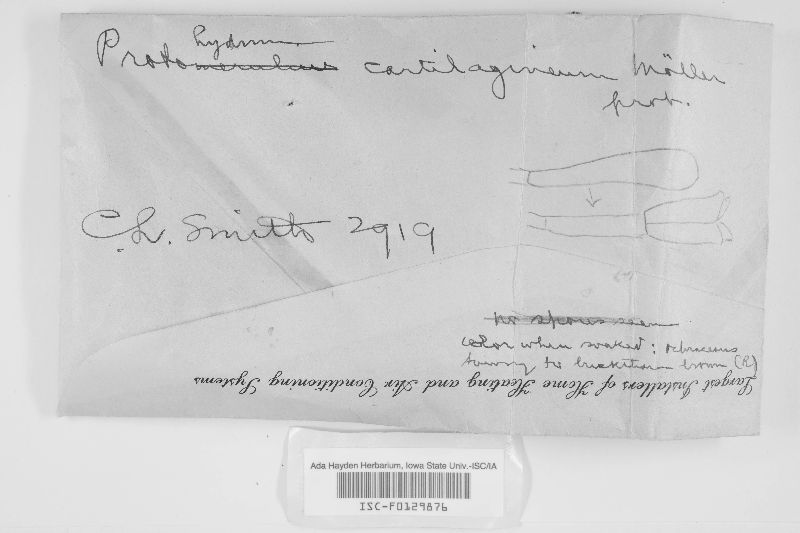 hydnum
Protomerulius cartilagineum Möller
prob.
C.L. Smith 2919
no spores seen
color when soaked: ochraceous
tawny to buckthorn brown (R)
Largest Installers of Home Heating and Air Conditioning Systems
Ada Hayden Herbarium, Iowa State Univ.-ISC/IA
ISC-F0129876